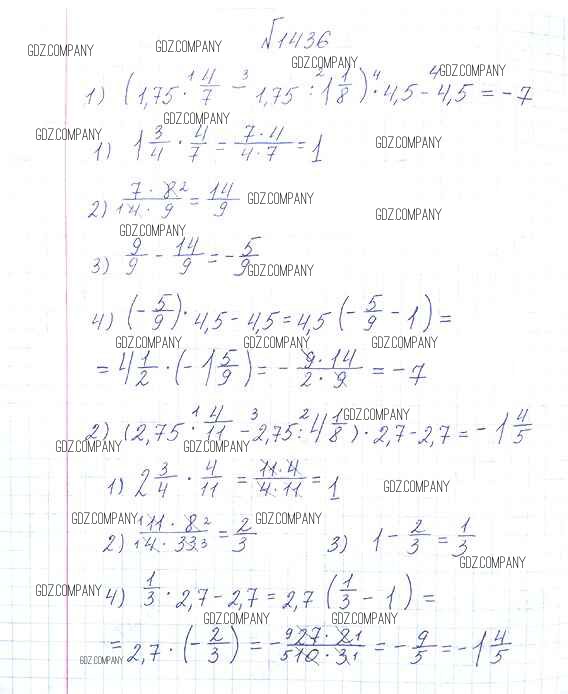 №1436
GDZ.COMPANY GDZ.COMPANY GDZ.COMPANY GDZ.COMPANY
1) (1,75 · 4/7 − 1,75 : 1 1/8) · 4,5 − 4,5 = −7
GDZ.COMPANY GDZ.COMPANY GDZ.COMPANY
1) 1 3/4 · 4/7 = 7·4/4·7 = 1
2) 7·8/4·9 = 14/9 GDZ.COMPANY GDZ.COMPANY
GDZ.COMPANY
3) 9/9 − 14/9 = −5/9 GDZ.COMPANY
4) (−5/9) · 4,5 − 4,5 = 4,5 (−5/9 − 1) =
GDZ.COMPANY GDZ.COMPANY GDZ.COMPANY
= 4 1/2 · (−1 5/9) = −9·14/2·9 = −7
GDZ.COMPANY
2) (2,75 · 4/11 − 2,75 : 4 1/8) · 2,7 − 2,7 = −1 4/5
GDZ.COMPANY GDZ.COMPANY
1) 2 3/4 · 4/11 = 11·4/4·11 = 1 GDZ.COMPANY
GDZ.COMPANY GDZ.COMPANY
2) 11·8/4·33 = 2/3 3) 1 − 2/3 = 1/3
GDZ.COMPANY
GDZ.COMPANY
4) 1/3 · 2,7 − 2,7 = 2,7 (1/3 − 1) =
GDZ.COMPANY GDZ.COMPANY
= 2,7 · (−2/3) = −27·2/10·3 = −9/5 = −1 4/5
GDZ.COMPANY